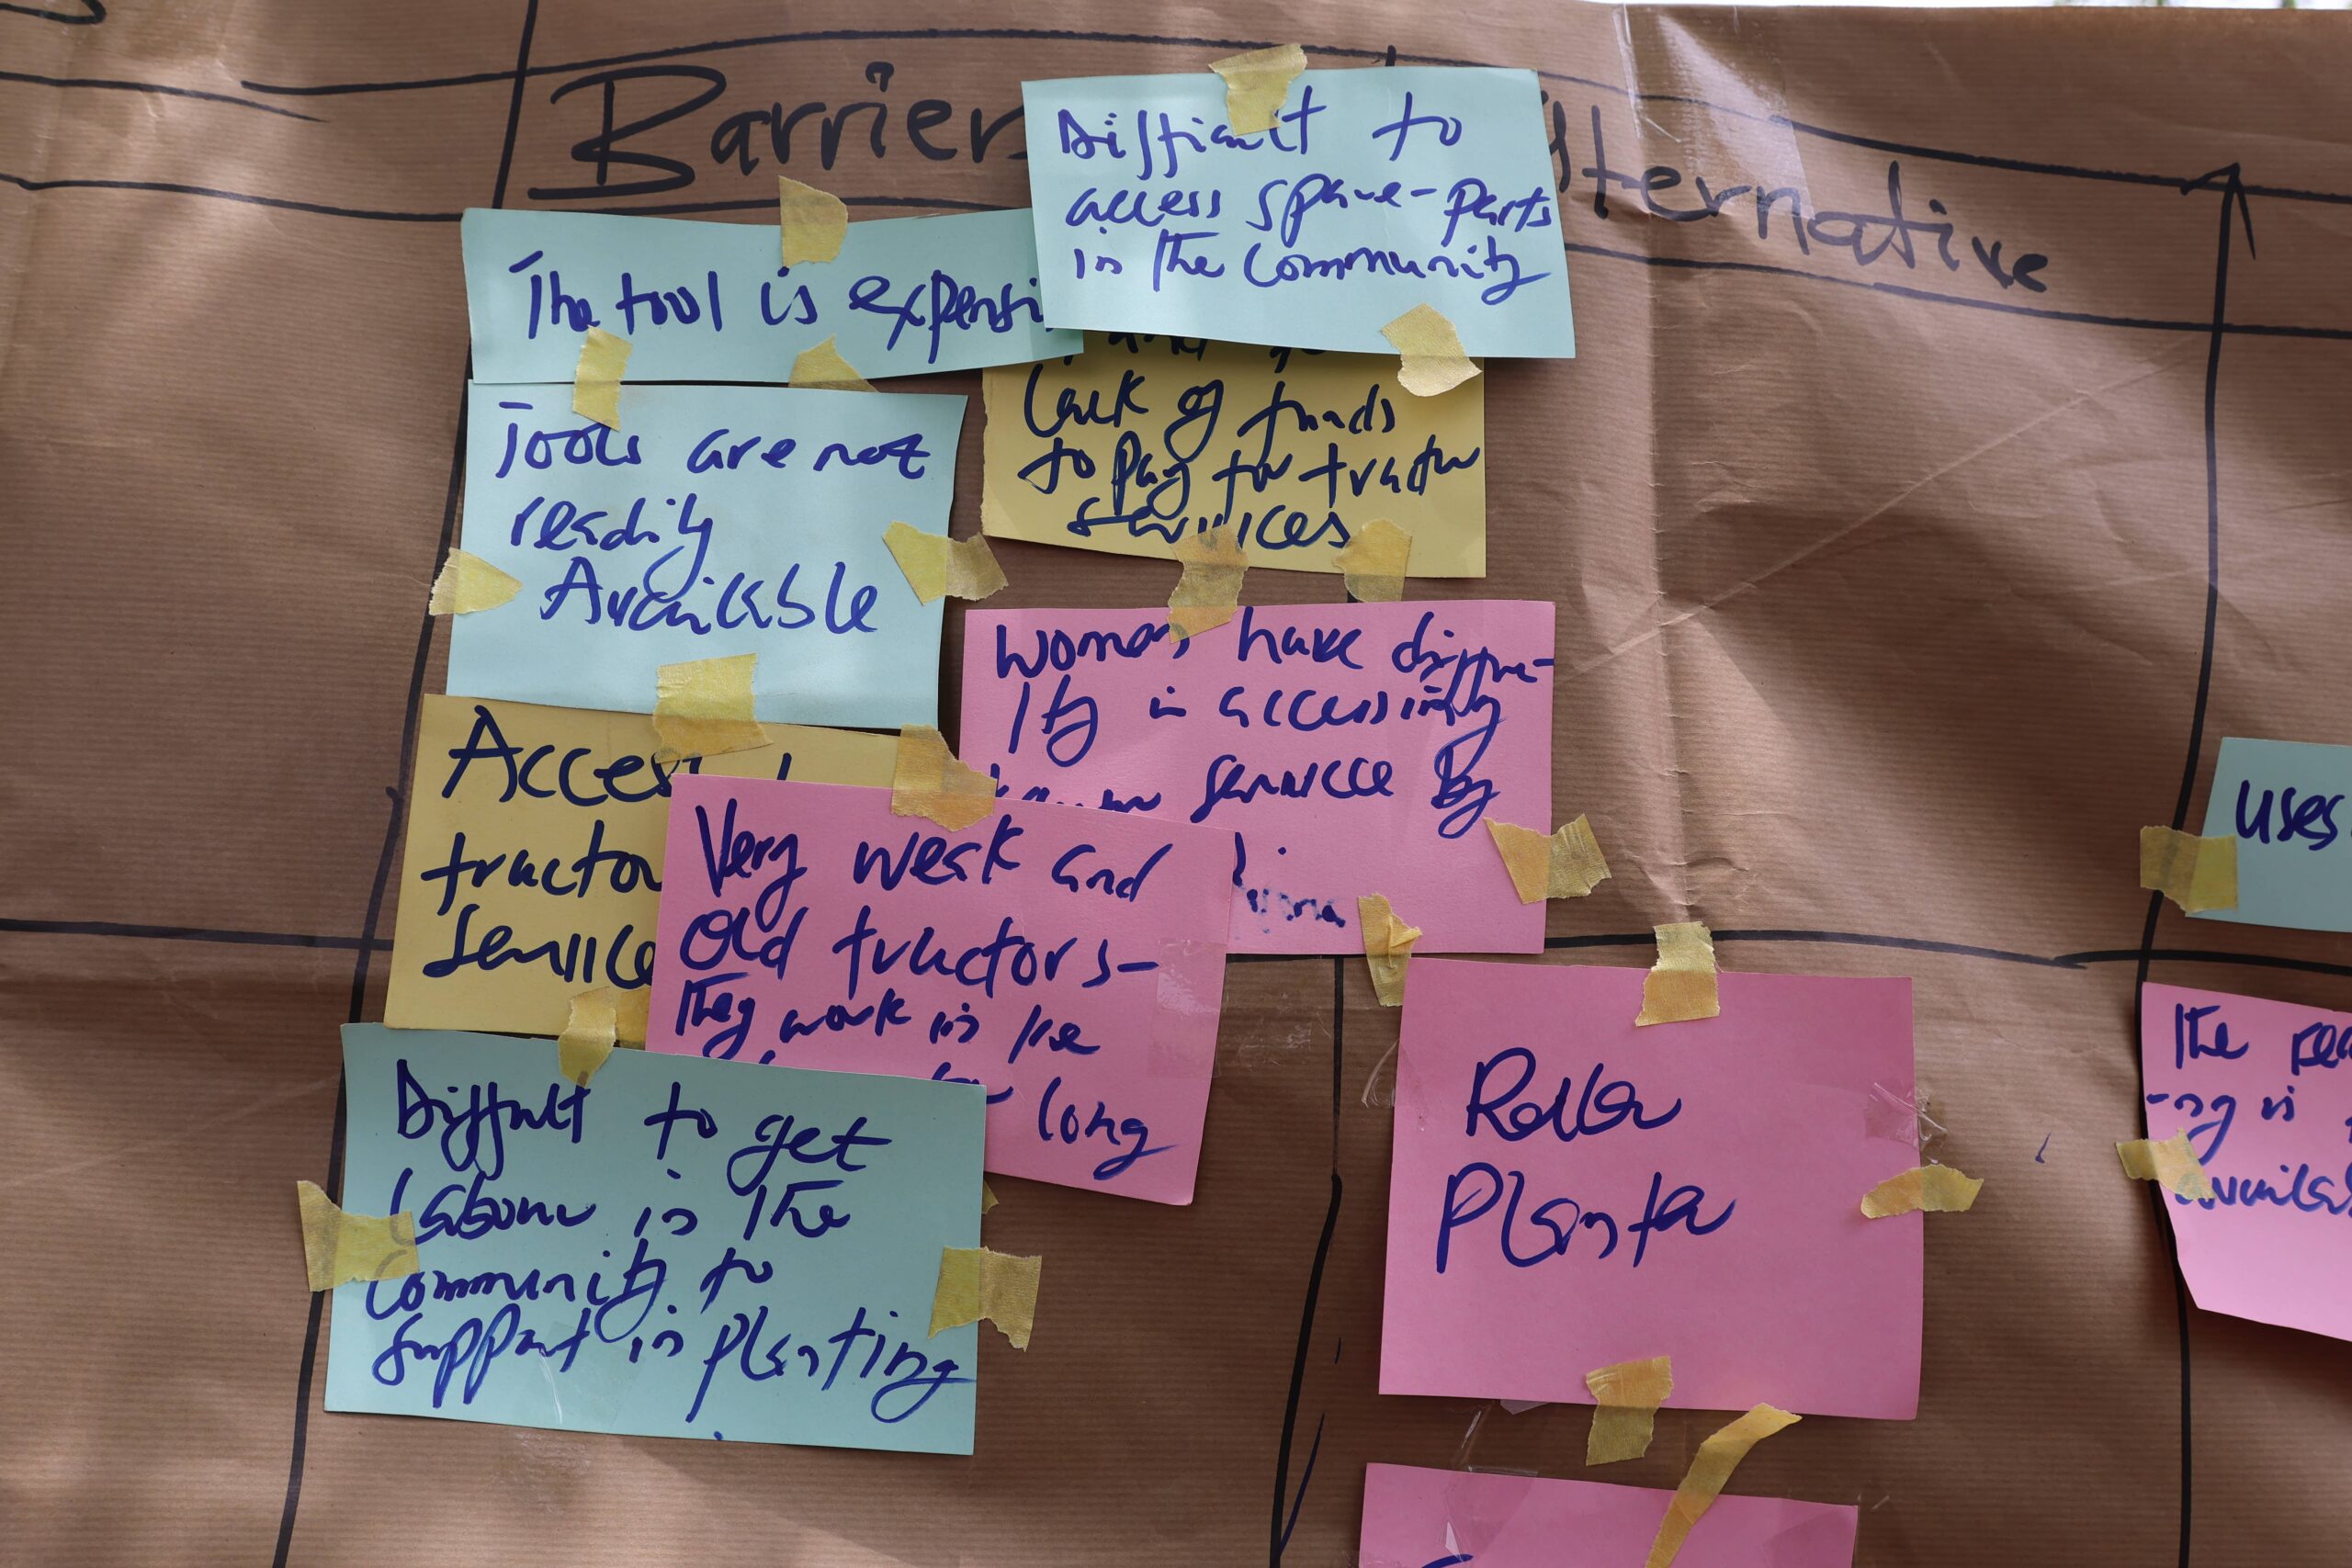 Barriers
Alternative
Difficult to
access spare-parts
in the community
The tool is expensi
lack of funds
to pay for tractor
services
Tools are not
readily
Available
Women have
in accessing
service by
Access
tractor
service
Very weak and
Old tractors-
They work in the
long
Difficult to get
labour in the
community to
support in planting
Roller
Planter
uses
The
-ng is
availab